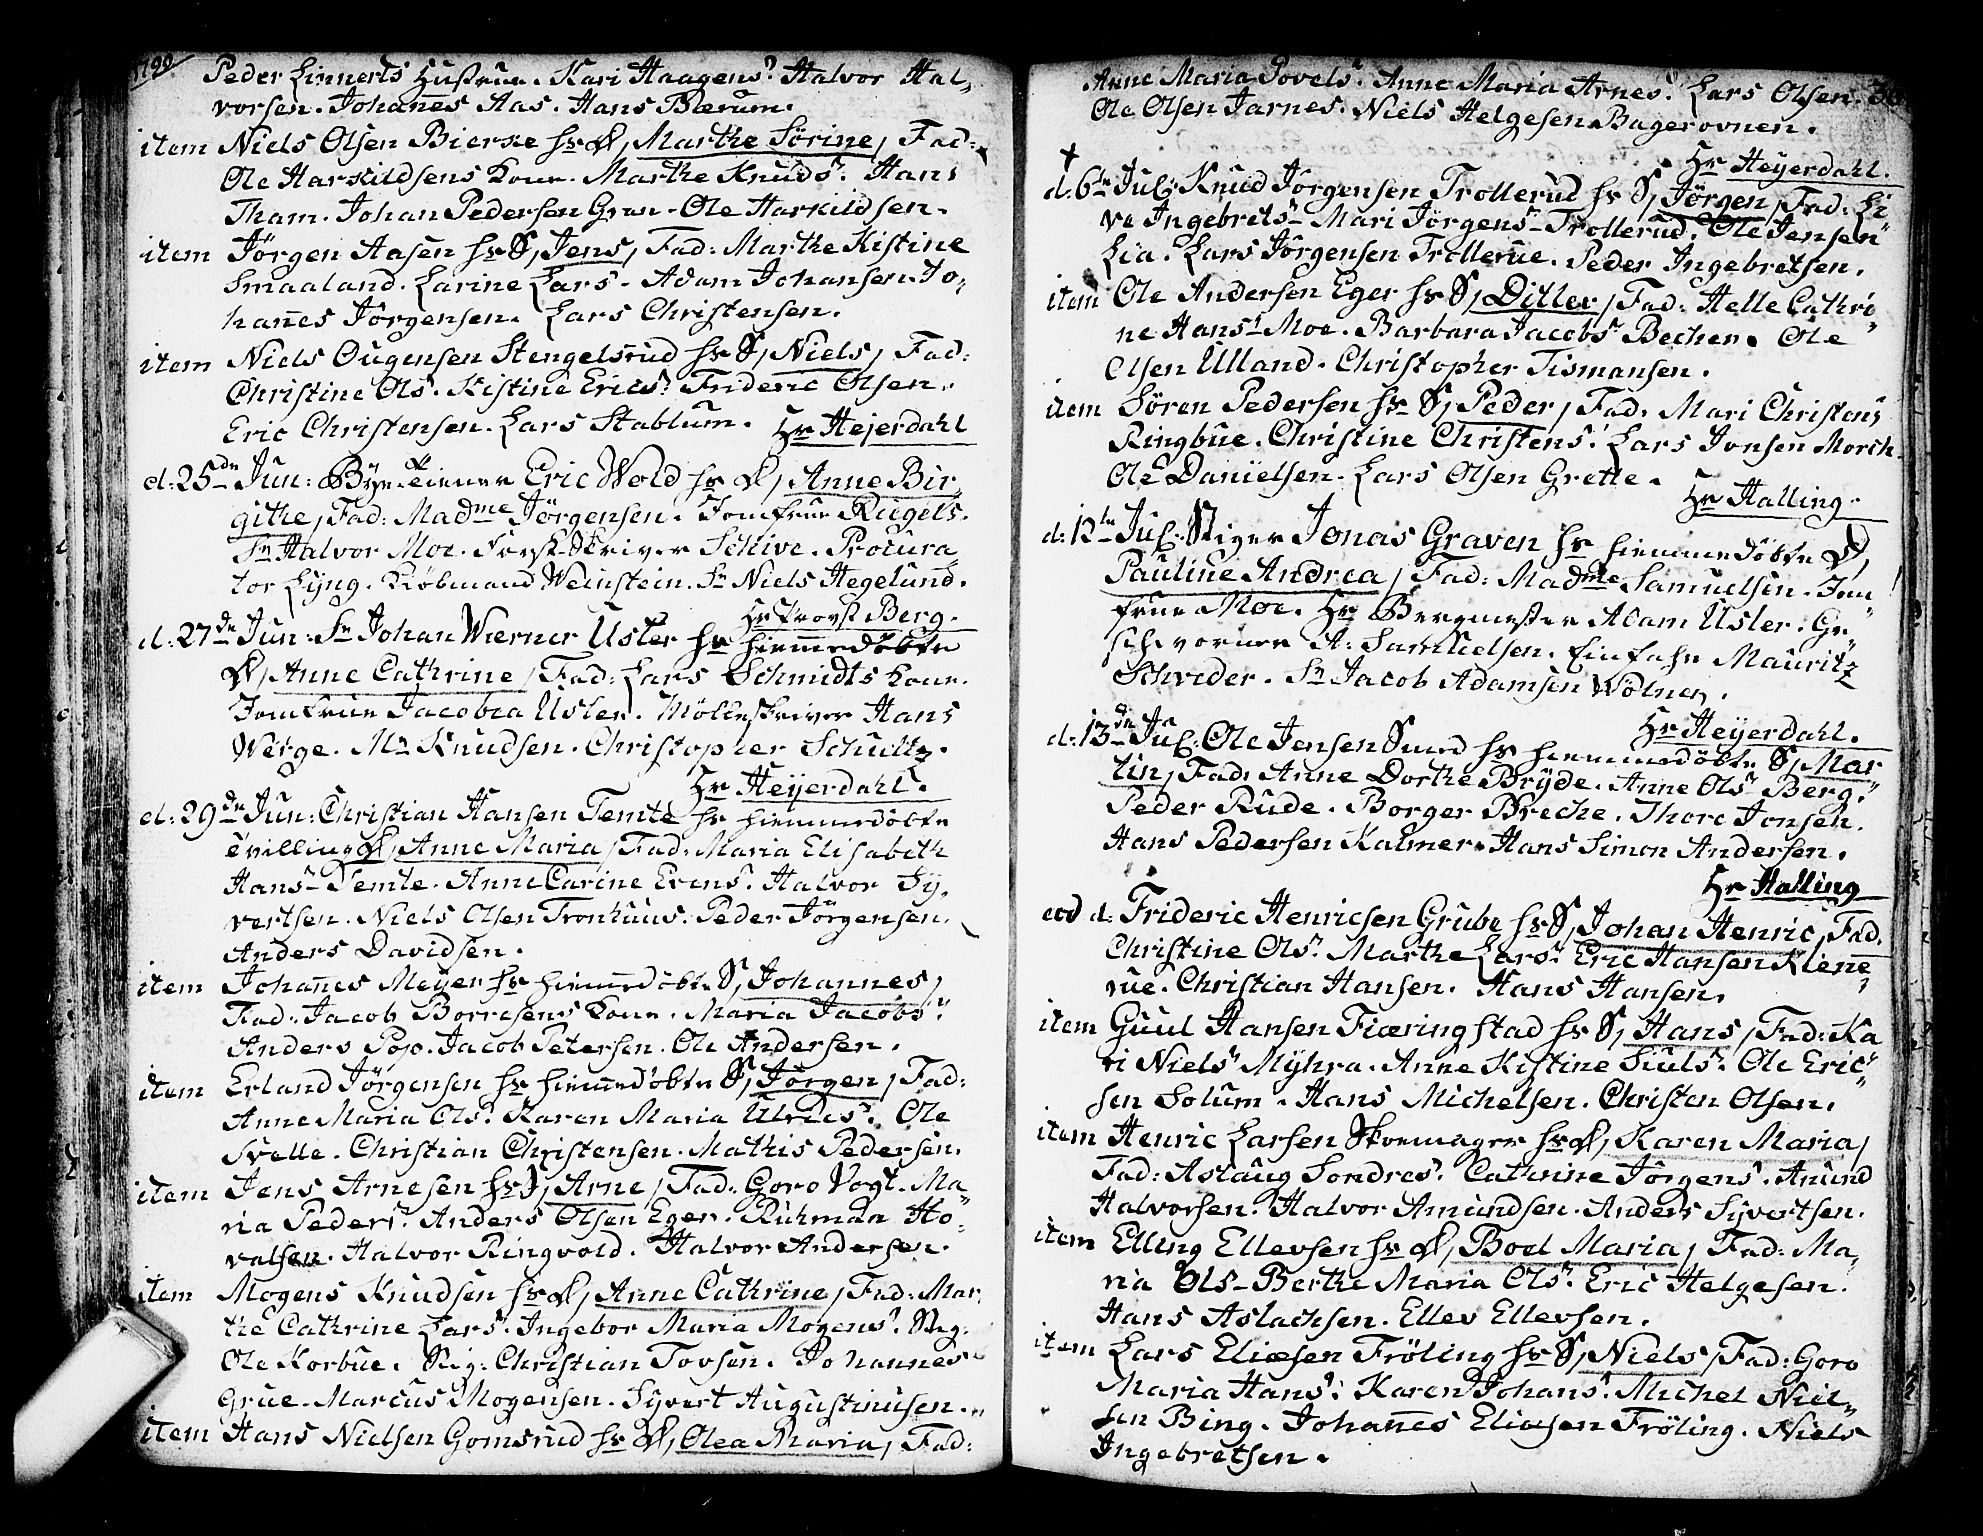 1799
Peder Linnerts Hustrue. Kari Haagens? Halvor Hal-
vorsen. Johannes Aas. Hans Bærum.
item Niels Olsen Bierke hs D, Marthe Sørine, Fad:
Ole Harkildsens Kone. Marthe Knuds? Hans
Tham. Johan Pedersen Gran. Ole Harkildsen.
item Jörgen Aasen hs S, Jens, Fad: Marthe Kistine
Smaaland. Larine Lars- Adam Johansen. Jo-
hannes Jörgensen. Lars Christensen.
item Niels Ougensen Stengelsrud hs S, Niels, Fad:
Christine Ols? Kistine Erics? Frideric Olsen.
Eric Christensen. Lars Stablum. Hr Hejerdahl
d: 25de Jun: Eric Wold hs D, Anne Bir-
githe, Fad: Madme Jörgensen. Jomfrue Rügels.
Sr Halvor Moe. Forst-Skriver Schive. Procura-
tor Lÿng. Kiøbmand Weinstein. Sr Niels Hegelund.
Hr Provst Berg.
d: 27de Jun: Sr Johan Werner Usler hs hiemmedöbte
D, Anne Cathrine, Fad: Lars Schmidts Kone.
Jomfrue Jacobea Usler. Mölleskriver Hans
Werge. Mr Knudsen. Christopher Schultz.
Hr Heÿerdahl.
d: 29de Jun: Christian Hansen Temte hs hiemmedöbte
tvilling D, Anne Maria, Fad: Maria Elisabeth
Hans- Temte. Anne Carine Evens? Halvor Sÿ-
vertsen. Niels Olsen Tronhuus. Peder Jörgensen.
Anders Davidsen.
item Johannes Meÿer hs hiemmedöbte S, Johannes,
Fad: Jacob Borresens Kone. Maria Jacobs?
Anders Pop. Jacob Petersen. Ole Andersen.
item Erland Jörgensen hs hiemmedöbte S, Jörgen, Fad:
Anne Maria Ols? Karen Maria Ulrics? Ole
Svelle. Christian Christensen. Mathis Pedersen.
item Jens Arnesen hs S, Arne, Fad: Goro Vogt. Ma-
ria Peders? Anders Olsen Eger. Ho-
valsen. Halvor Ringvold. Halvor Andersen.
item Mogens Knudsen hs D, Anne Cathrine, Fad: Mar-
the Cathrine Lars? Ingebor Maria Mogens? Stig:
Ole Korbue. Stig: Christian Tovsen. Johannes
Grue. Marcus Mogensen. Syvert Augustinusen.
item Hans Nielsen Gomsrud hs D, Olea Maria, Fad:
Anne Maria Povels? Anne Maria Arnes? Lars Olsen.
Ole Olsen Jarnes. Niels Helgesen Bagerovnen.
Hr Heyerdahl.
d: 6te Jul: Knud Jörgensen Trollerud hs S, Jörgen, Fad: Li-
ve Ingebrets- Mari Jörgens- Trollerud. Ole Jensen
Lia. Lars Jörgensen Trollerue. Peder Ingebretsen.
item Ole Andersen Eger hs S, Ditler, Fad: Helle Cathri-
ne Hans? Moe. Barbara Jacobs? Bechen. Ole
Olsen Ulland. Christopher Tismansen.
item Sören Pedersen hs S, Peder, Fad: Mari Christens
Ringbue. Christine Christens? Lars Jonsen Morch
Ole Danielsen. Lars Olsen Grette.
Hr Halling.
d: 12te Jul: Stiger Jonas Graven hs hiemmedöbte D,
Pauline Andrea, Fad: Madme Samuelsen. Jom-
frue Moe. Hr Bergmester Adam Usler. Ge-
schworner A: Samuelsen. Einfahr Mauritz
Schreder. Sr Jacob Adamsen Wölner.
Hr Heÿerdahl.
d: 13de Jul: Ole Jensen Smed hs hiemmedöbte S, Mar-
tin, Fad: Anne Dorthe Brÿde. Anne Ols- Berg.
Peder Rude. Borger Breche. Thore Jonsen.
Hans Pedersen Kalmer. Hans Simon Andersen.
Hr Halling
eod d: Frideric Henricsen Grube hs S, Johan Henric, Fad:
Christine Ols? Marthe Lars? Eric Hansen Klene-
rue. Christian Hansen. Hans Hansen.
item Guul Hansen Fiæringstad hs S, Hans, Fad: Ka-
ri Niels? Mÿhra. Anne Kistine Siuls? Ole Eric-
sen Solum. Hans Michelsen. Christen Olsen.
item Henric Larsen Skoemager hs D, Karen Maria,
Fad: Aslaug Sondres? Cathrine Jörgens? Anund
Halvorsen. Halvor Amundsen. Anders Syvertsen.
item Elling Ellevsen hs D, Boel Maria, Fad: Ma-
ria Ols- Berthe Maria Ols? Eric Helgesen.
Hans Aslachsen. Ellev Ellevsen.
item Lars Eliæsen Fröling hs S, Niels, Fad: Goro
Maria Hans? Karen Johans? Michel Niel-
sen Bing. Johannes Eliæsen Fröling. Niels
Ingebretsen.